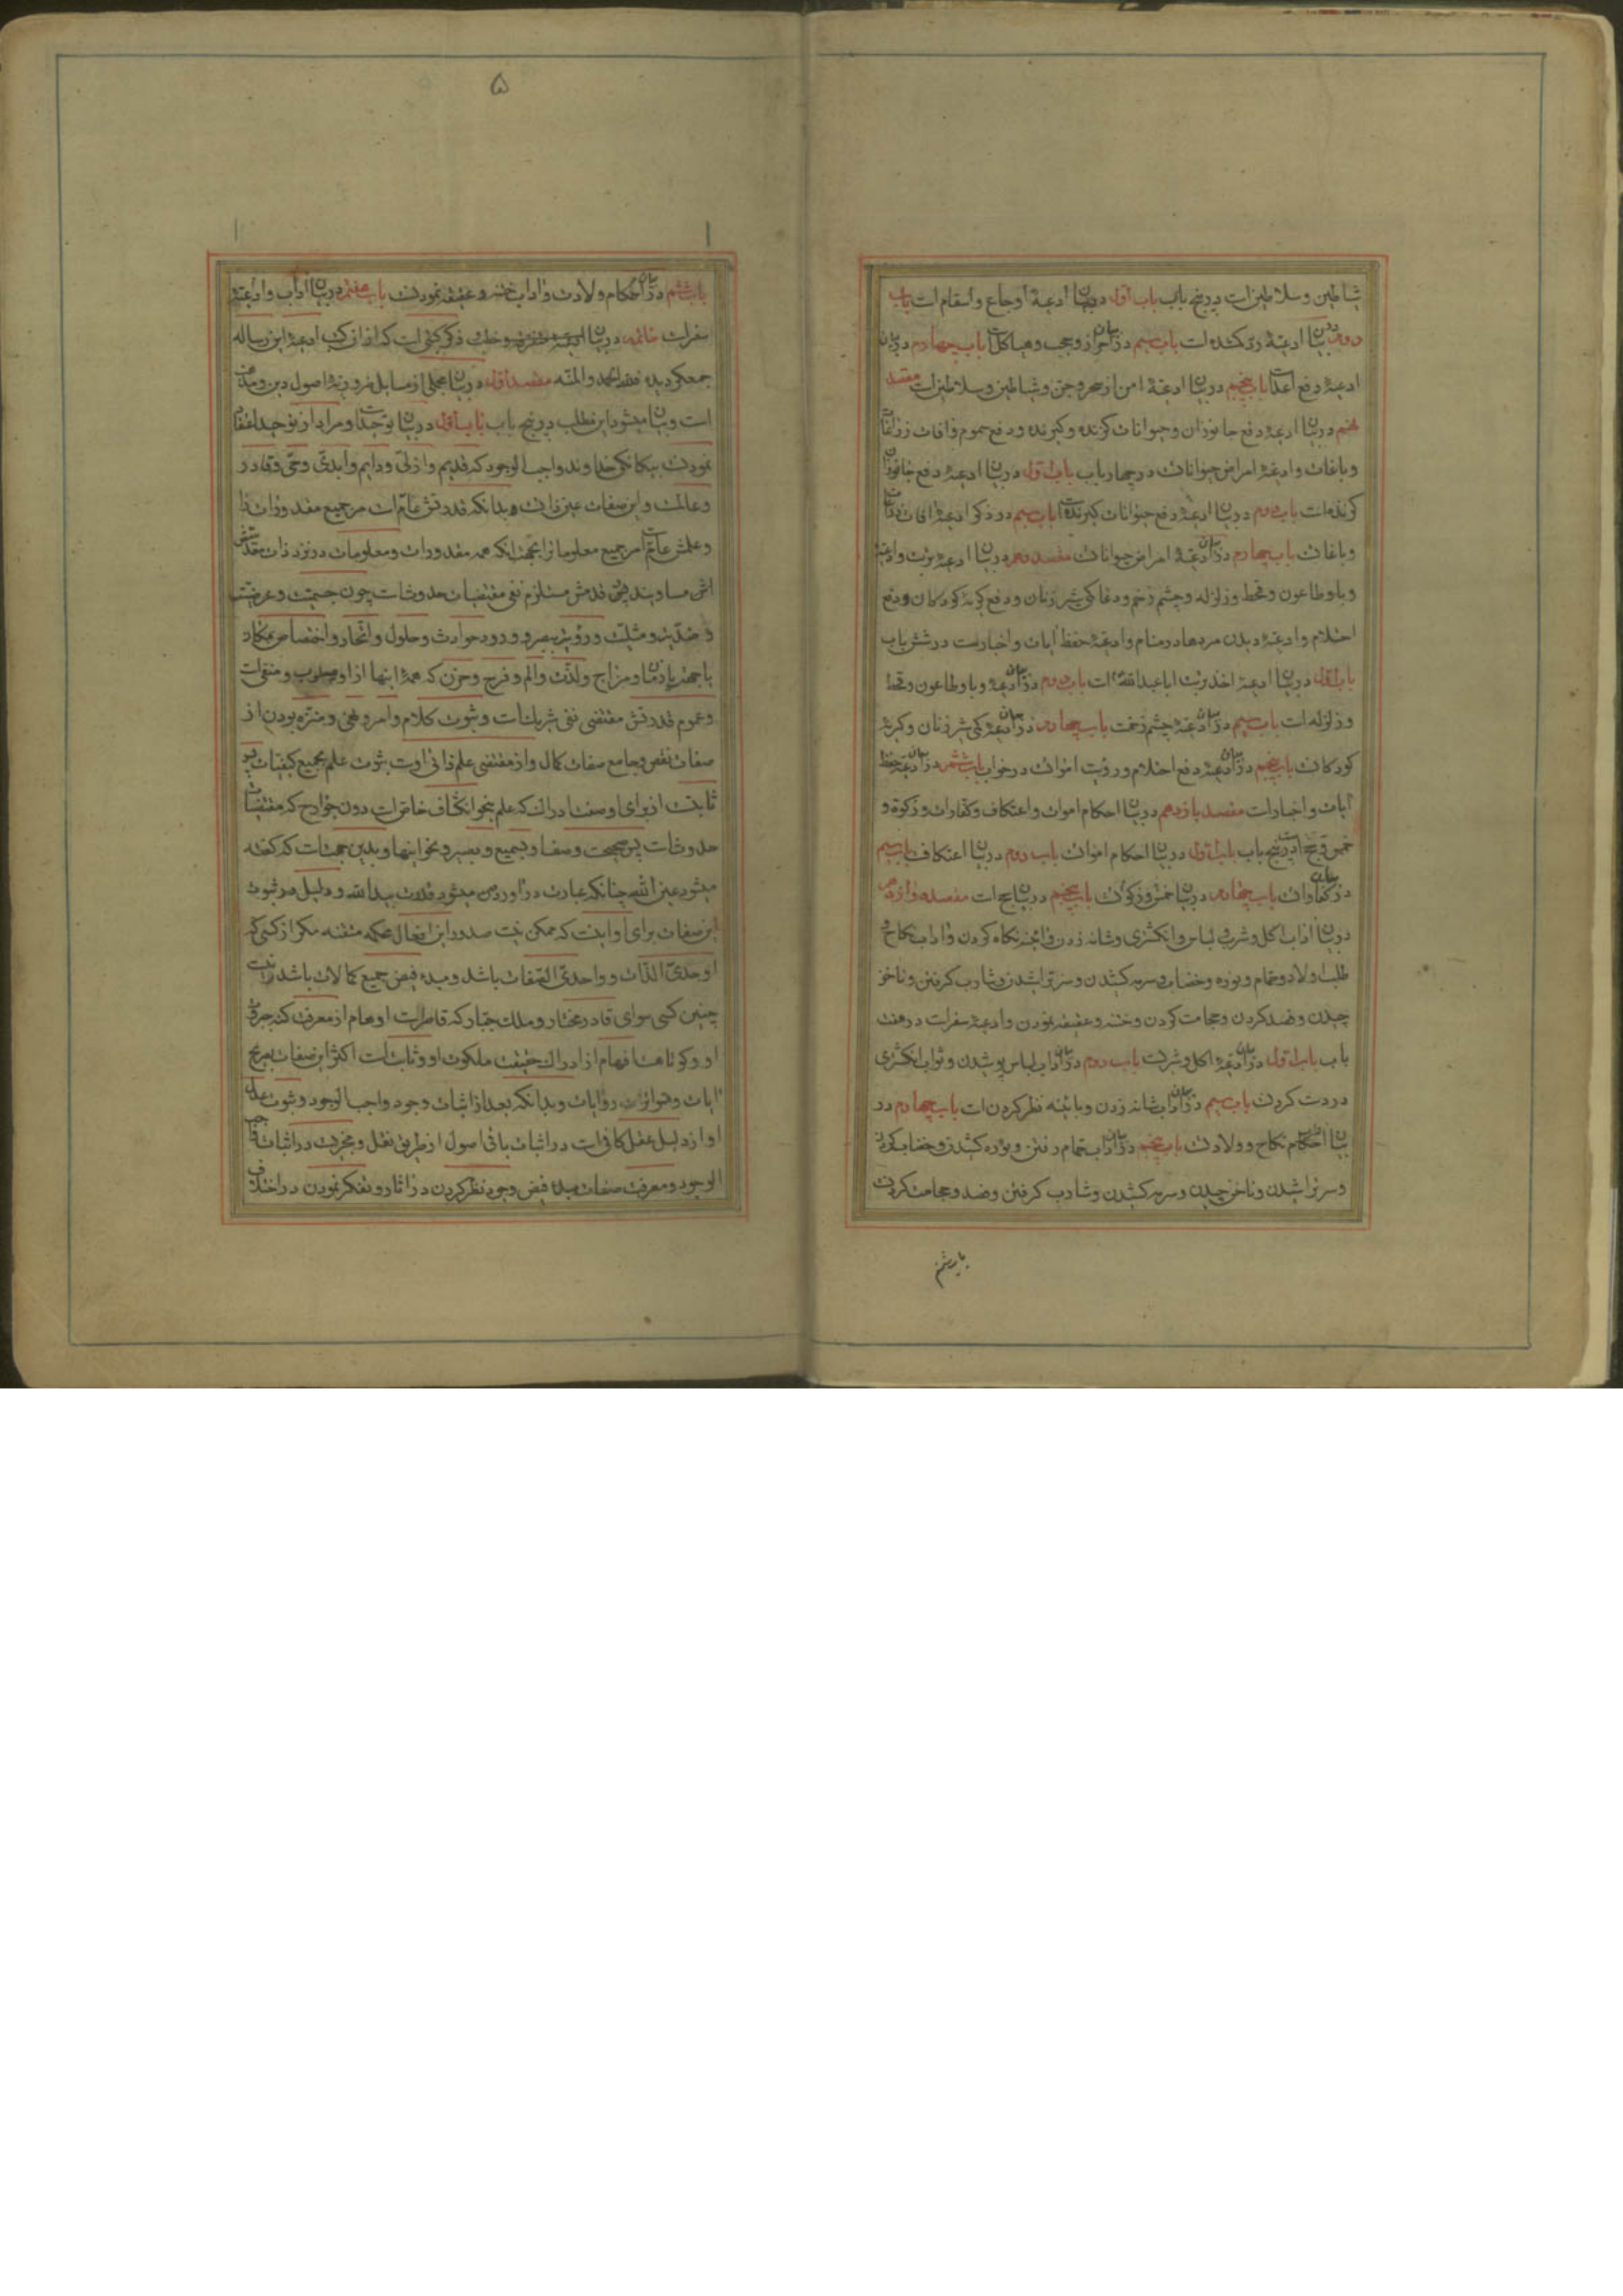 شیاطین و سلاطین است در پنج باب باب اول در بیان ادعیهٔ اوجاع و اسقام است باب
دویم در بیان ادعیهٔ است باب سیم در بیان احراز و حجب و هیاکل است باب چهارم در بیان
ادعیهٔ دفع اعداست باب پنجم در بیان ادعیهٔ امن از سحر و جن و شیاطین و سلاطین است مقصد
نهم در بیان ادعیهٔ دفع جانوران و حیوانات گزنده و گیرنده و دفع سموم و افات زراعات
و باغات و ادعیهٔ امراض حیوانات در چهار باب باب اول در بیان ادعیهٔ دفع جانوران
گزنده است باب دوم در بیان ادعیهٔ دفع حیوانات گیرنده است باب سیم در ذکر ادعیهٔ افات زراعات
و باغات باب چهارم در بیان ادعیهٔ امراض حیوانات مقصد دهم در بیان ادعیهٔ تربت و ادعیهٔ
وبا و طاعون و قحط و زلزله و چشم زخم و دعا کمی شیر زنان و دفع گریهٔ کودکان و دفع
احتلام و ادعیهٔ دیدن مردها در منام و ادعیهٔ حفظ ایات و اخبار است در شش باب
باب اول در بیان ادعیهٔ اخذ تربت ابا عبدالله است باب دوم در بیان ادعیهٔ وبا و طاعون و قحط
و زلزله است باب سیم در بیان ادعیهٔ چشم زخمست باب چهارم در بیان ادعیهٔ کمی شیر زنان و گریهٔ
کودکان باب پنجم در بیان ادعیهٔ دفع احتلام و رؤیت اموات در خواب باب ششم در بیان ادعیهٔ حفظ
ایات و اخبار است مقصد یازدهم در بیان احکام اموات و اعتکاف و کفارات و زکوة و
خمس و حج است در پنج باب باب اول در بیان احکام اموات باب دوم در بیان اعتکاف باب سیم
در بیان کفارات باب چهارم در بیان خمس و زکوة باب پنجم در بیان حج است مقصد دوازدهم
در بیان اداب اکل و شرب و لباس و انگشتری و شانه زدن و اینه نگاه کردن و اداب نکاح و
طلب اولاد و حمام و نوره و خضاب و سرمه کشیدن و سر تراشیدن و شارب گرفتن و ناخن
چیدن و فصد کردن و حجامت کردن و ختنه و عقیقه نمودن و ادعیهٔ سفر است در هفت
باب باب اول در بیان ادعیهٔ اکل و شربست باب دوم در بیان اداب لباس پوشیدن و ثواب انگشتری
در دست کردن باب سیم در بیان اداب شانه زدن و باینه نظر کردن است باب چهارم در
بیان احکام نکاح و ولادت باب پنجم در بیان اداب حمام رفتن و نوره کشیدن و خضاب کردن
و سر تراشیدن و ناخن چیدن و سرمه کشیدن و شارب گرفتن و فصد و حجامت کردن
باب ششم
۵
باب ششم در بیان احکام ولادت و اداب ختنه و عقیقه نمودن باب هفتم در بیان اداب و ادعیهٔ
سفر است خاتمه در بیان ذکر کتبی است که از ان کتب ادعیهٔ این رساله
جمع گردیده فلله الحمد والمنه مقصد اول در بیان مجملی از مسایل ضروریهٔ اصول دین
است و بیان میشود این مطلب در پنج باب باب اول در بیان توحید است و مراد از توحید اعتقاد
نمودن بیکانکی خداوند واجب الوجود که قدیم و ازلی و دایم و ابدی و حی و قادر
و عالمست و این صفات عین ذات و بدانکه قدرتش عام است مر جمیع مقدورات را
و علمش عام است مر جمیع معلومات را بجهت انکه همه مقدورات و معلومات در نزد ذات مقدسش
اش مساویند پس قدمش مستلزم نفی مقتضیات حدوثات چون جسمیت و عرضیت
و ضدّیت و مثلیت و رؤیت ببصر و ورود حوادث و حلول و اتحاد و اختصاص بمکان
یا جهة یا زمان و مزاج و لذّت و الم و فرح و حزن که همهٔ اینها از او مسلوب و منفی است
و عموم قدرتش مقتضی نفی شریکست و ثبوت کلام و امر و نهی و منزه بودن از
صفات نقص و جامع صفات کمال و از مقتضی علم ذاتی اوست ثبوت علم بجمیع کیفیات پس
ثابتست از برای او صفت ادراک که علم بنحو انکشاف خاص است دون جوارح که مقتضیات
حدوثات پس صحیحست وصف او بسمیع و بصیر و نحو اینها و بدین جهت است که گفته
میشود عین الله چنانکه عبارت در آوردن میشود قدرت بید الله و دلیل بر ثبوت
این صفات برای او اینست که ممکن نیست صدور این افعال محکمه متقنه مگر از کسی که
اوحدی الذات و واحدی الصفات باشد و مبدء فیض جمیع کمالات باشد و نیست
چنین کسی سوای قادر مختار و ملک جبار که قاصر است اوهام از معرفت کنه جبروت
او و کوتاهست افهام از ادراک حقیقت ملکوت او و ثابت است اکثر این صفات بصریح
ایات و متواترات روایات و بدانکه بعد از اثبات وجود واجب الوجود و ثبوت عدل
او از دلیل عقل کافی است در اثبات باقی اصول از طریق نقل و در اثبات واجب
الوجود و معرفت صفات مبدء فیض وجود نظر کردن در اثار و تفکر نمودن در اختلاف